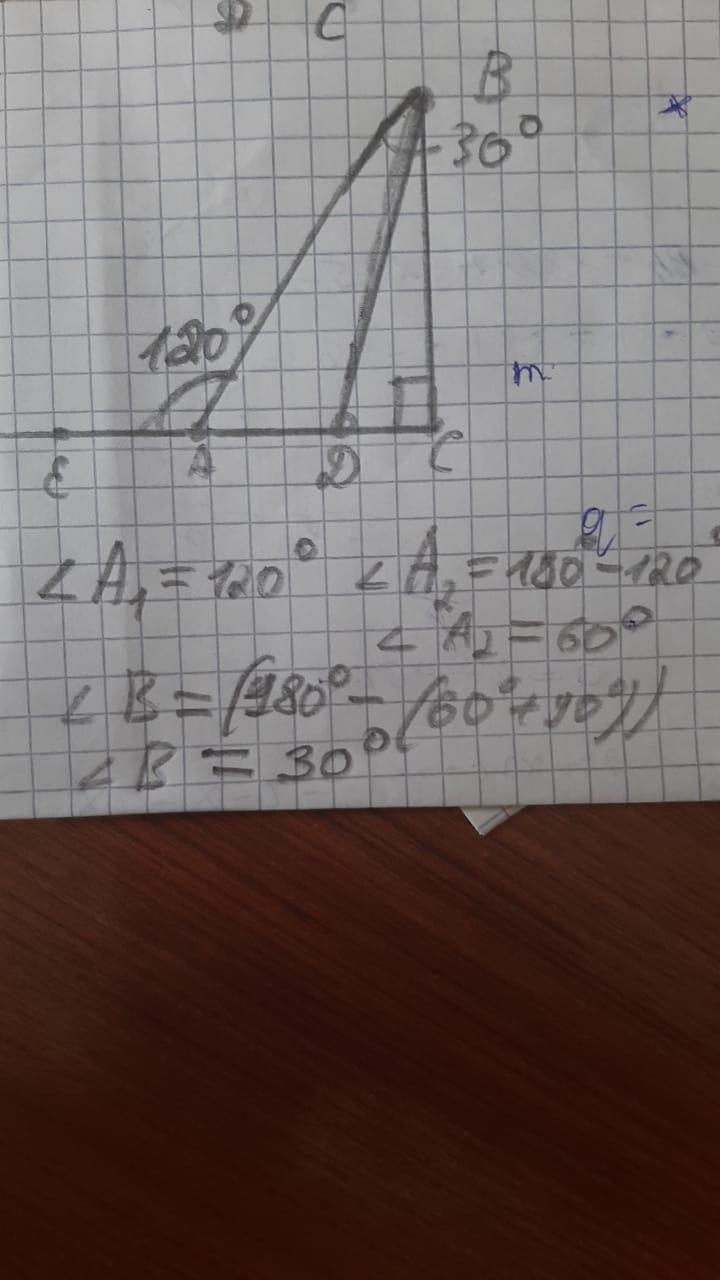 D C
B
30°
120°
m
E A D C
q =
∠A₁ = 120° ∠A₂ = 180° - 120°
∠A₂ = 60°
∠B = (180° - (60° + 90°))
∠B = 30°